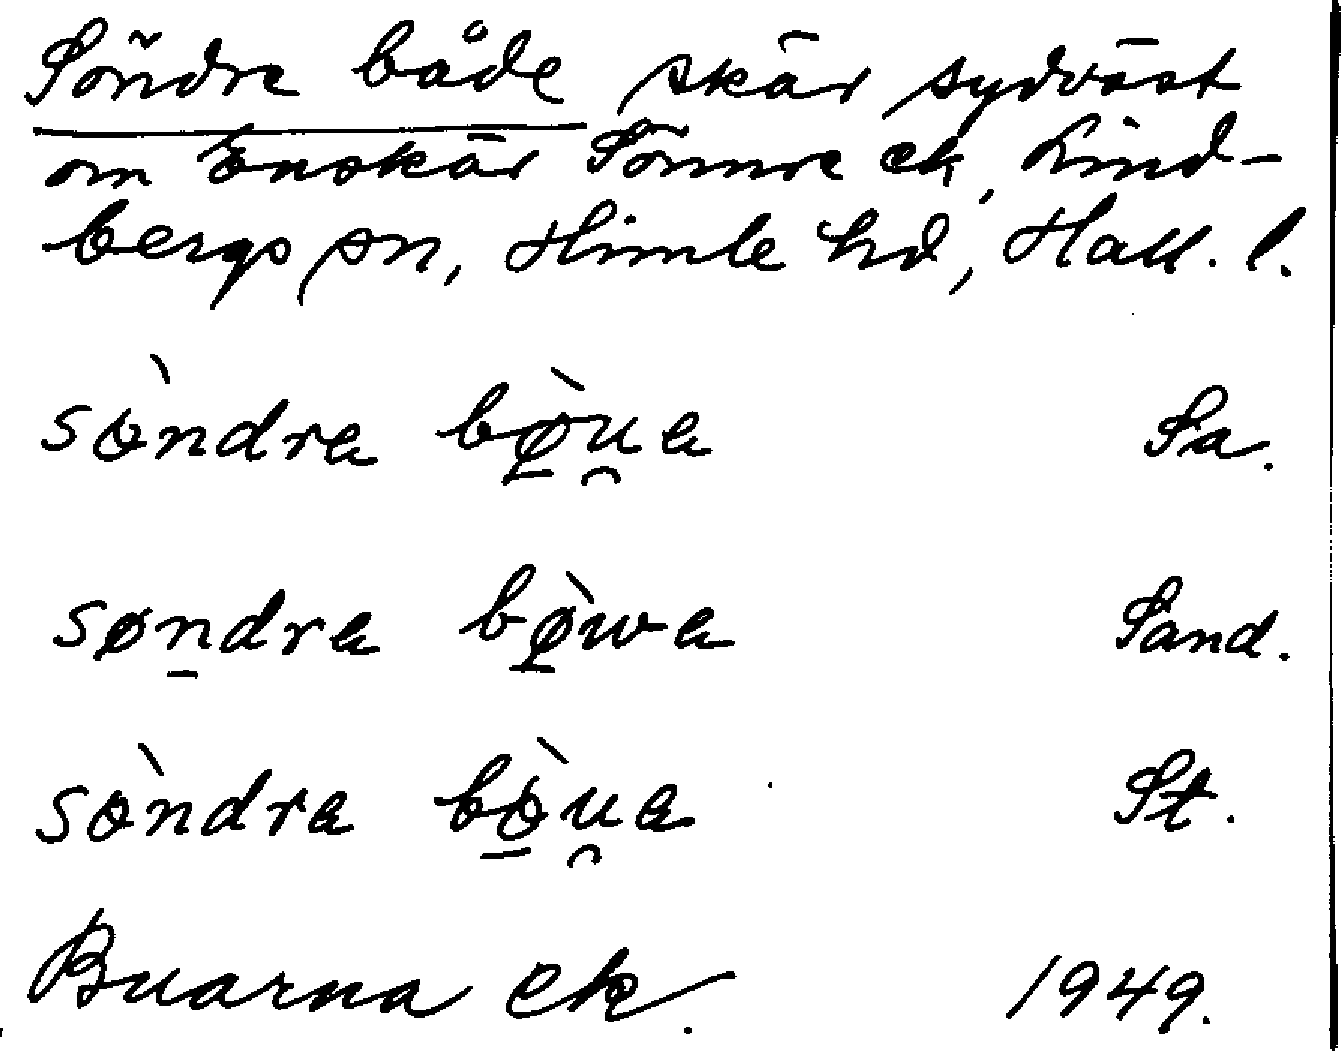 Söndre både skär sydväst
om Enskär Sönnre ek, Lind-
bergs sn, Himle hd, Hall. l.
sòndra bø̱̀u̯a Sa.
søn̠dra bø̱̀wa Sand.
sòndra bò̱u̯a St.
Buarna ek. 1949.